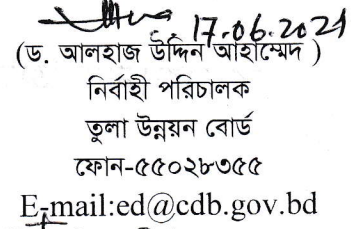 17.06.2021
(ড. আলহাজ উদ্দিন আহাম্মেদ )
নির্বাহী পরিচালক
তুলা উন্নয়ন বোর্ড
ফোন-৫৫০২৮৩৫৫
E-mail:ed@cdb.gov.bd